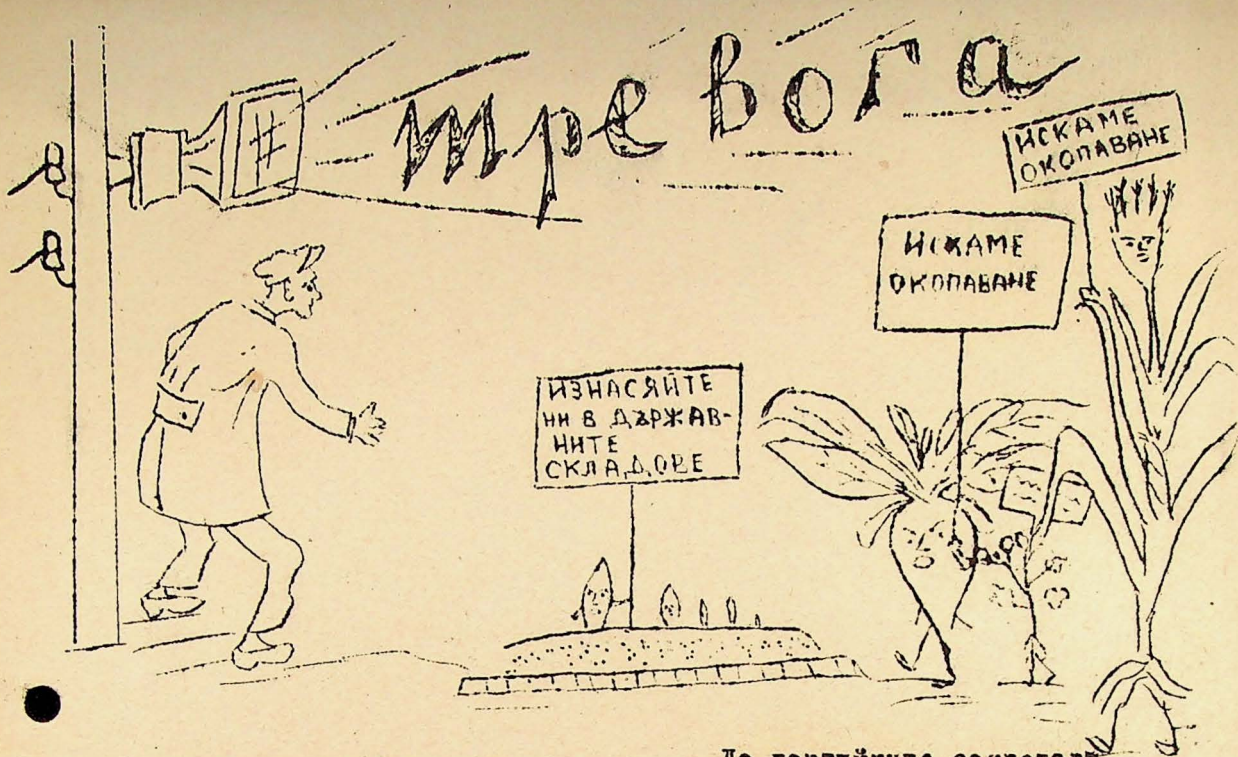 тревога
ИСКАМЕ
ОКОПАВАНЕ
ИСКАМЕ
ОКОПАВАНЕ
ИЗНАСЯЙТЕ
НИ В ДЪРЖАВ-
НИТЕ
СКЛАДОВЕ